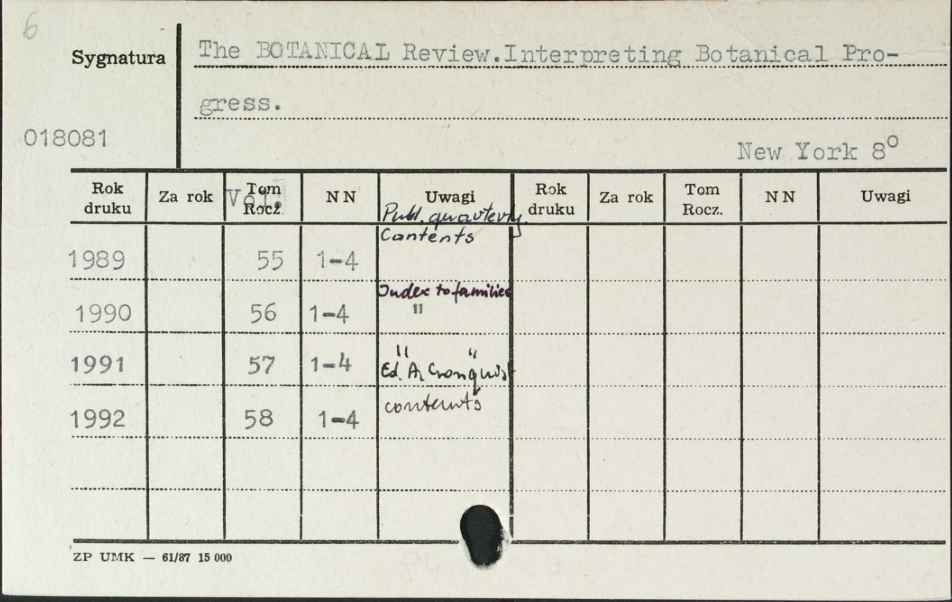 6
Sygnatura The BOTANICAL Review.Interpreting Botanical Pro-
gress.
018081
New York 8º
Rok druku Za rok Vol. Tom Rocz. NN Uwagi Rok druku Za rok Tom Rocz. NN Uwagi
Publ. quarterly.
Contents
1989 55 1-4
Index to families
1990 56 1-4 "
" "
1991 57 1-4 Ed. A. Cronquist
contents
1992 58 1-4
ZP UMK — 61/87 15 000